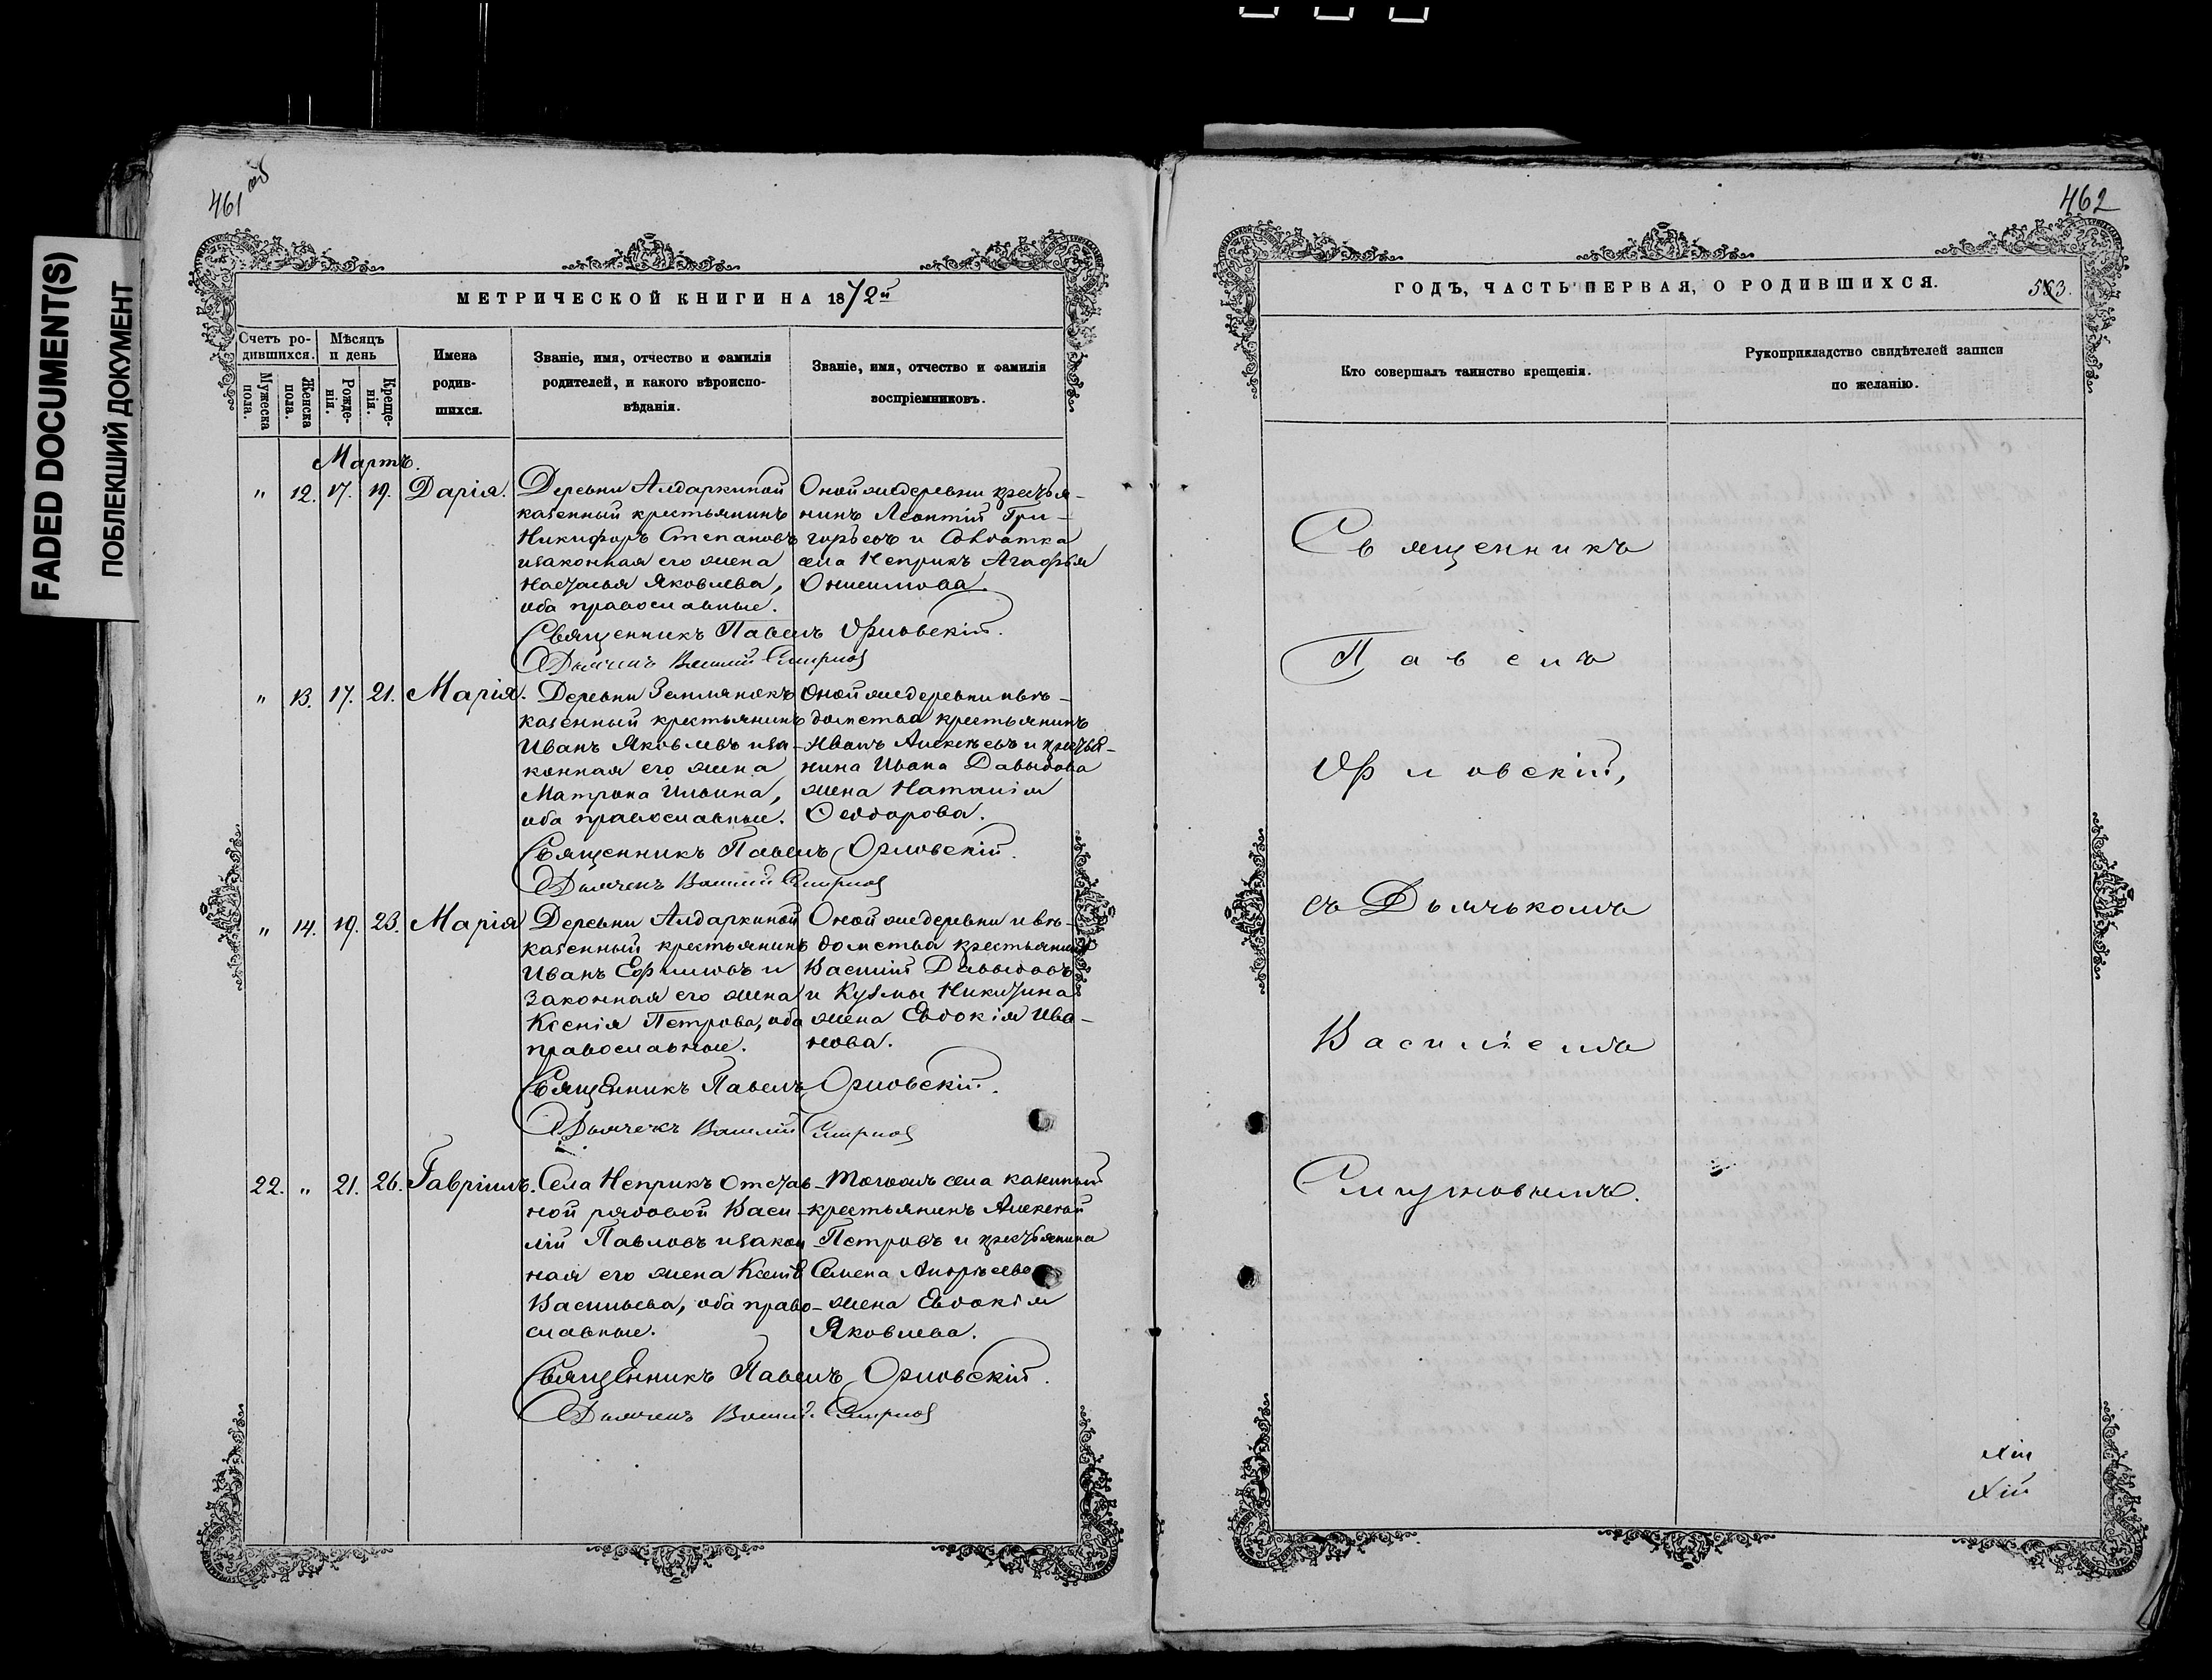 FADED DOCUMENT(S)
ПОБЛЕКШИЙ ДОКУМЕНТ
461 об
МЕТРИЧЕСКОЙ КНИГИ НА 1872й
Счетъ родившихся.
Мужеска пола.
Женска пола.
Мѣсяцъ и день
Рожденія.
Крещенія.
Имена родившихся.
Званіе, имя, отчество и фамилія
родителей, и какого вѣроиспо-
вѣданія.
Званіе, имя, отчество и фамилія
воспріемниковъ.
Мартъ.
" 12. 17. 19. Дарія.
Деревни Алдаркиной
казенный крестьянинъ
Никифоръ Степановъ
изаконная его жена
Настасья Яковлева,
оба православные.
Оной жедеревни крестья-
нинъ Леонтій Гри-
горьевъ и
села Неприкъ Агафья
Онисимова.
Священникъ Павелъ Орловскій.
Дьячекъ Василій Смирновъ
" 13. 17. 21. Марія.
Деревни Землянокъ
казенный крестьянинъ
Иванъ Яковлевъ иза-
конная его жена
Матрона Ильина,
оба православные.
Оной жедеревни ивѣ-
домства крестьянинъ
Иванъ Алексѣевъ и крестья-
нина Ивана Давыдова
жена Наталія
Ѳеодорова.
Священникъ Павелъ Орловскій.
Дьячекъ Василій Смирновъ
" 14. 19. 23. Марія
Деревни Алдаркиной
казенный крестьянинъ
Иванъ Ефимовъ и
законная его жена
Ксенія Петрова, оба
православные.
Оной жедеревни ивѣ-
домства крестьянинъ
Василій Давыдовъ
и Кузмы Никитина
жена Евдокія Ива-
нова.
Священникъ Павелъ Орловскій.
Дьячекъ Василій Смирновъ
22. " 21. 26. Гавріилъ.
Села Неприкъ Отстав-
ной рядовой Васи-
лій Павловъ изакон
ная его жена Ксенія
Васильева, оба право-
славные.
Тогожъ села казенный
крестьянинъ Алексѣй
Петровъ и крестьянина
Семена Андрѣева
жена Евдокія
Яковлева.
Священникъ Павелъ Орловскій.
Дьячекъ Василій Смирновъ
462
ГОДЪ, ЧАСТЬ ПЕРВАЯ, О РОДИВШИХСЯ.
Кто совершалъ таинство крещенія.
Рукоприкладство свидѣтелей записи
по желанію.
Священникъ
Павелъ
Орловскій,
съ Дьячькомъ
Василіемъ
Смирновымъ.